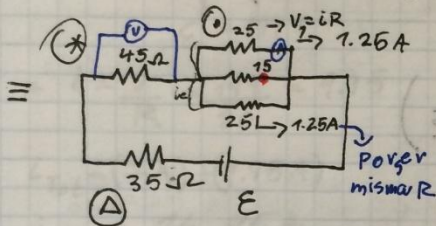 (*
V
45Ω
25 → V=iR
A → 1.25A
15
ie
25 → 1.25A
Por ser
misma R
≡
35Ω
ε
Δ